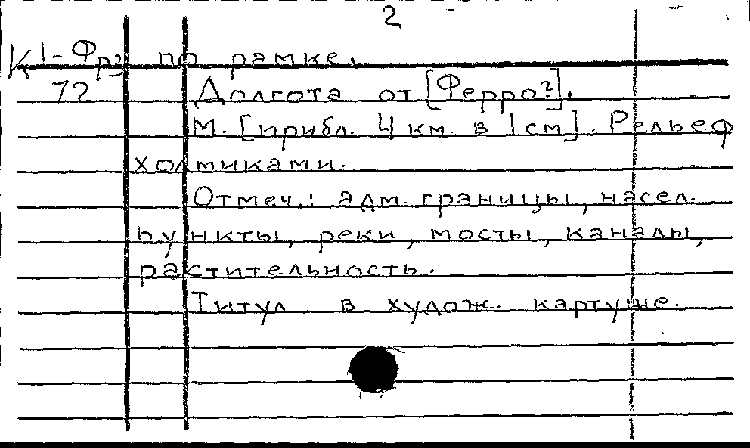 2
К1-Фрз по рамке.
72 Долгота от [Ферро?].
М. [прибл. 4 км. в 1 см]. Рельеф
холмиками.
Отмеч.: адм. границы, насел.
пункты, реки, мосты, каналы,
растительность.
Титул в худож. картуше.